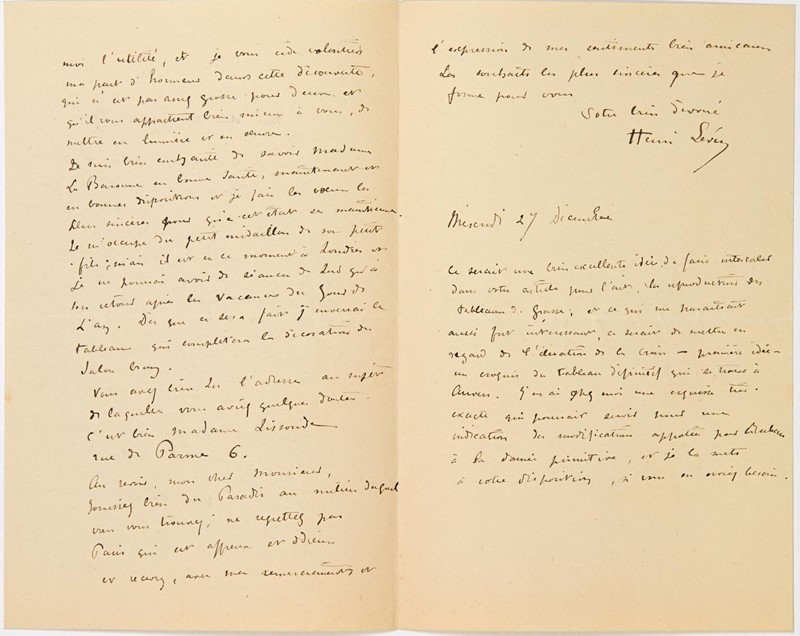 moi l'utilité, et je vous cède volontiers
ma part d'honneur dans cette découverte,
qui n'est pas assez grosse pour deux et
qu'il vous appartient bien mieux à vous, de
mettre en lumière et en œuvre.
Je suis bien enchanté de savoir Madame
La Baronne en bonne santé, maintenant et
en bonnes dispositions et je fais les vœux les
plus sincères pour que cet état se maintienne.
Je m'occupe du petit médaillon de son petit
fils; mais il est en ce moment à Londres et
je ne pourrai avoir de séance de lui qu'à
son retour après les vacances du Jour de
L'an. Dès que ce sera fait j'enverrai le
tableau qui complétera la décoration du
Salon
Vous avez bien lu l'adresse au sujet
de laquelle vous aviez quelques doutes.
C'est bien Madame Lissonde
rue de Parme 6.
Au revoir, mon cher Monsieur,
Jouissez bien du Paradis au milieu duquel
vous vous trouvez; ne regrettez pas
Paris qui est affreux et odieux
et recevez, avec mes remerciements et
l'expression de mes sentiments bien amicaux
Les souhaits les plus sincères que je
forme pour vous
Votre bien dévoué
Henri Lévy
Mercredi 27 Décembre
Ce serait une bien excellente idée de faire intercaler
dans votre article pour l'art, la reproduction des
tableaux de Grasse; et ce qui me paraîtrait
aussi fort intéressant, ce serait de mettre en
regard de l'élévation de la Croix — première idée —
un croquis du tableau définitif qui se trouve à
Anvers. J'en ai chez moi une esquisse très
exacte qui pourrait servir pour une
indication des modifications apportées par Rubens
à la donnée primitive, et je la mets
à votre disposition, si vous en aviez besoin.